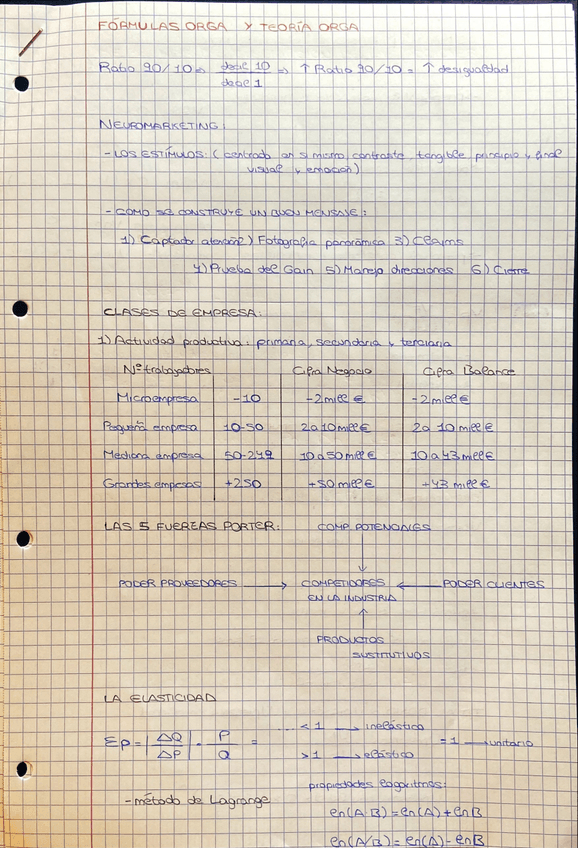 FÓRMULAS ORGA Y TEORÍA ORGA
Ratio 90/10 => decil 10 / decil 1 => ↑ Ratio 90/10 = ↑ desigualdad
NEUROMARKETING:
- LOS ESTÍMULOS: (centrado en sí mismo, contraste, tangible, principio y final
visual y emoción)
- COMO SE CONSTRUYE UN BUEN MENSAJE:
1) Captador atención 2) Fotografía panorámica 3) Claims
4) Prueba del Gain 5) Manejo direcciones 6) Cierre
CLASES DE EMPRESA:
1) Actividad productiva: primaria, secundaria y terciaria
Nº trabajadores Cifra Negocio Cifra Balance
Microempresa -10 -2 mill € -2 mill €
Pequeña empresa 10-50 2 a 10 mill € 2 a 10 mill €
Mediana empresa 50-249 10 a 50 mill € 10 a 43 mill €
Grandes empesas +250 +50 mill € +43 mill €
LAS 5 FUERZAS PORTER: COMP POTENCIALES
PODER PROVEEDORES → COMPETIDORES ← PODER CLIENTES
EN LA INDUSTRIA
PRODUCTOS
SUSTITUTIVOS
LA ELASTICIDAD
< 1 → inelástico
Ep = |ΔQ/ΔP| · P/Q = = 1 → unitario
> 1 → elástico
propiedades logaritmos:
- método de Lagrange
ln(A·B) = ln(A) + lnB
ln(A/B) = ln(A) - lnB